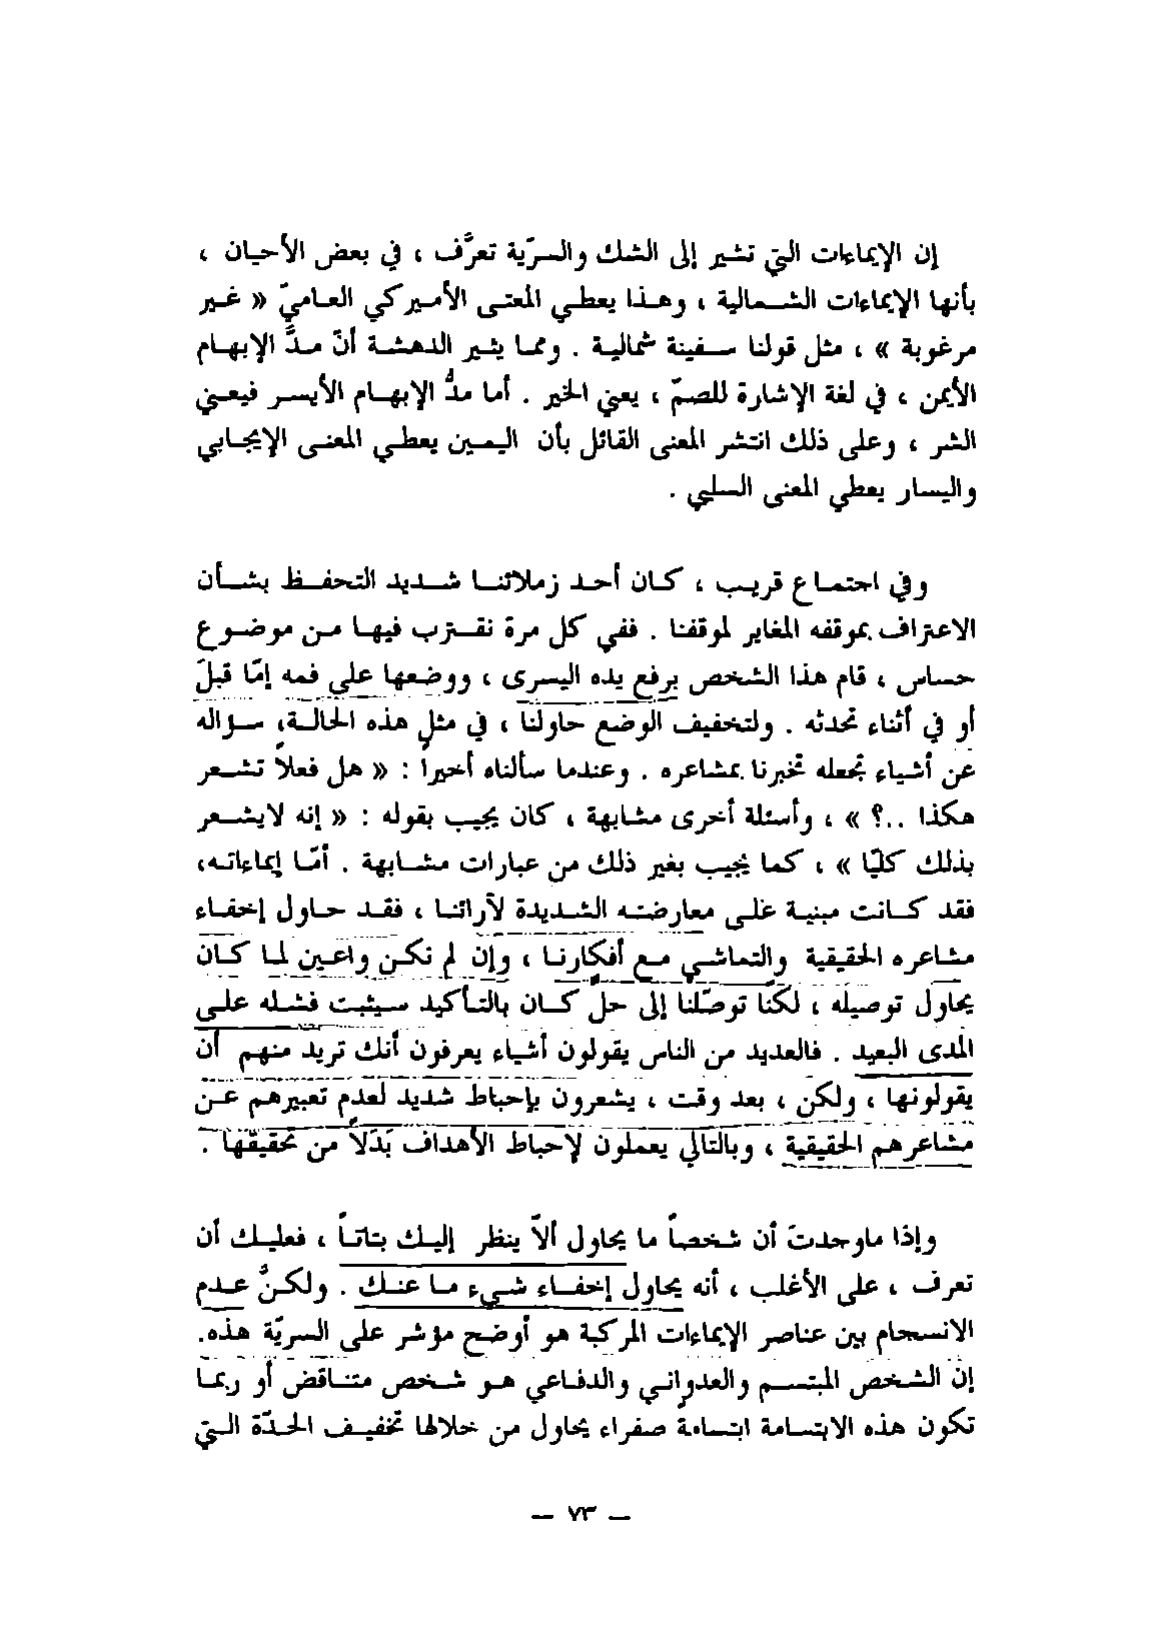 إن الإيماءات التي تشير إلى الشك والسرّية تعرَّف ، في بعض الأحيان ،
بأنها الإيماءات الشمالية ، وهذا يعطي المعنى الأميركي العاميّ « غير
مرغوبة » ، مثل قولنا سفينة شمالية . ومما يثير الدهشة أنّ مدَّ الإبهام
الأيمن ، في لغة الإشارة للصمّ ، يعني الخير . أما مدُّ الإبهام الأيسر فيعني
الشر ، وعلى ذلك انتشر المعنى القائل بأن اليمين يعطي المعنى الإيجابي
واليسار يعطي المعنى السلبي .
وفي اجتماع قريب ، كان أحد زملائنا شديد التحفظ بشأن
الاعتراف بموقفه المغاير لموقفنا . ففي كل مرة نقترب فيها من موضوع
حساس ، قام هذا الشخص برفع يده اليسرى ، ووضعها على فمه إمّا قبلَ
أو في أثناء تحدثه . ولتخفيف الوضع حاولنا ، في مثل هذه الحالة، سؤاله
عن أشياء تجعله تخبرنا بمشاعره . وعندما سألناه أخيراً : « هل فعلاً تشعر
هكذا ..؟ » ، وأسئلة أخرى مشابهة ، كان يجيب بقوله : « إنه لايشعر
بذلك كليّا » ، كما يجيب بغير ذلك من عبارات مشابهة . أمّا إيماءاته،
فقد كانت مبنية على معارضته الشديدة لآرائنا ، فقد حاول إخفاء
مشاعره الحقيقية والتماشي مع أفكارنا ، وإن لم نكن واعين لما كان
يحاول توصيله ، لكنّا توصّلنا إلى حلٍّ كان بالتأكيد سيثبت فشله على
المدى البعيد . فالعديد من الناس يقولون أشياء يعرفون أنك تريد منهم أن
يقولونها ، ولكن ، بعد وقت ، يشعرون بإحباط شديد لعدم تعبيرهم عن
مشاعرهم الحقيقية ، وبالتالي يعملون لإحباط الأهداف بَدَلاً من تحقيقها .
وإذا ماوجدتَ أن شخصاً ما يحاول ألاّ ينظر إليك بتاتاً ، فعليك أن
تعرف ، على الأغلب ، أنه يحاول إخفاء شيء ما عنك . ولكنُّ عدم
الانسجام بين عناصر الإيماءات المركبة هو أوضح مؤشر على السريّة هذه.
إن الشخص المبتسم والعدواني والدفاعي هو شخص متناقض أو ربما
تكون هذه الابتسامة ابتسامةً صفراء يحاول من خلالها تخفيف الحدّة التي
— ٧٣ —